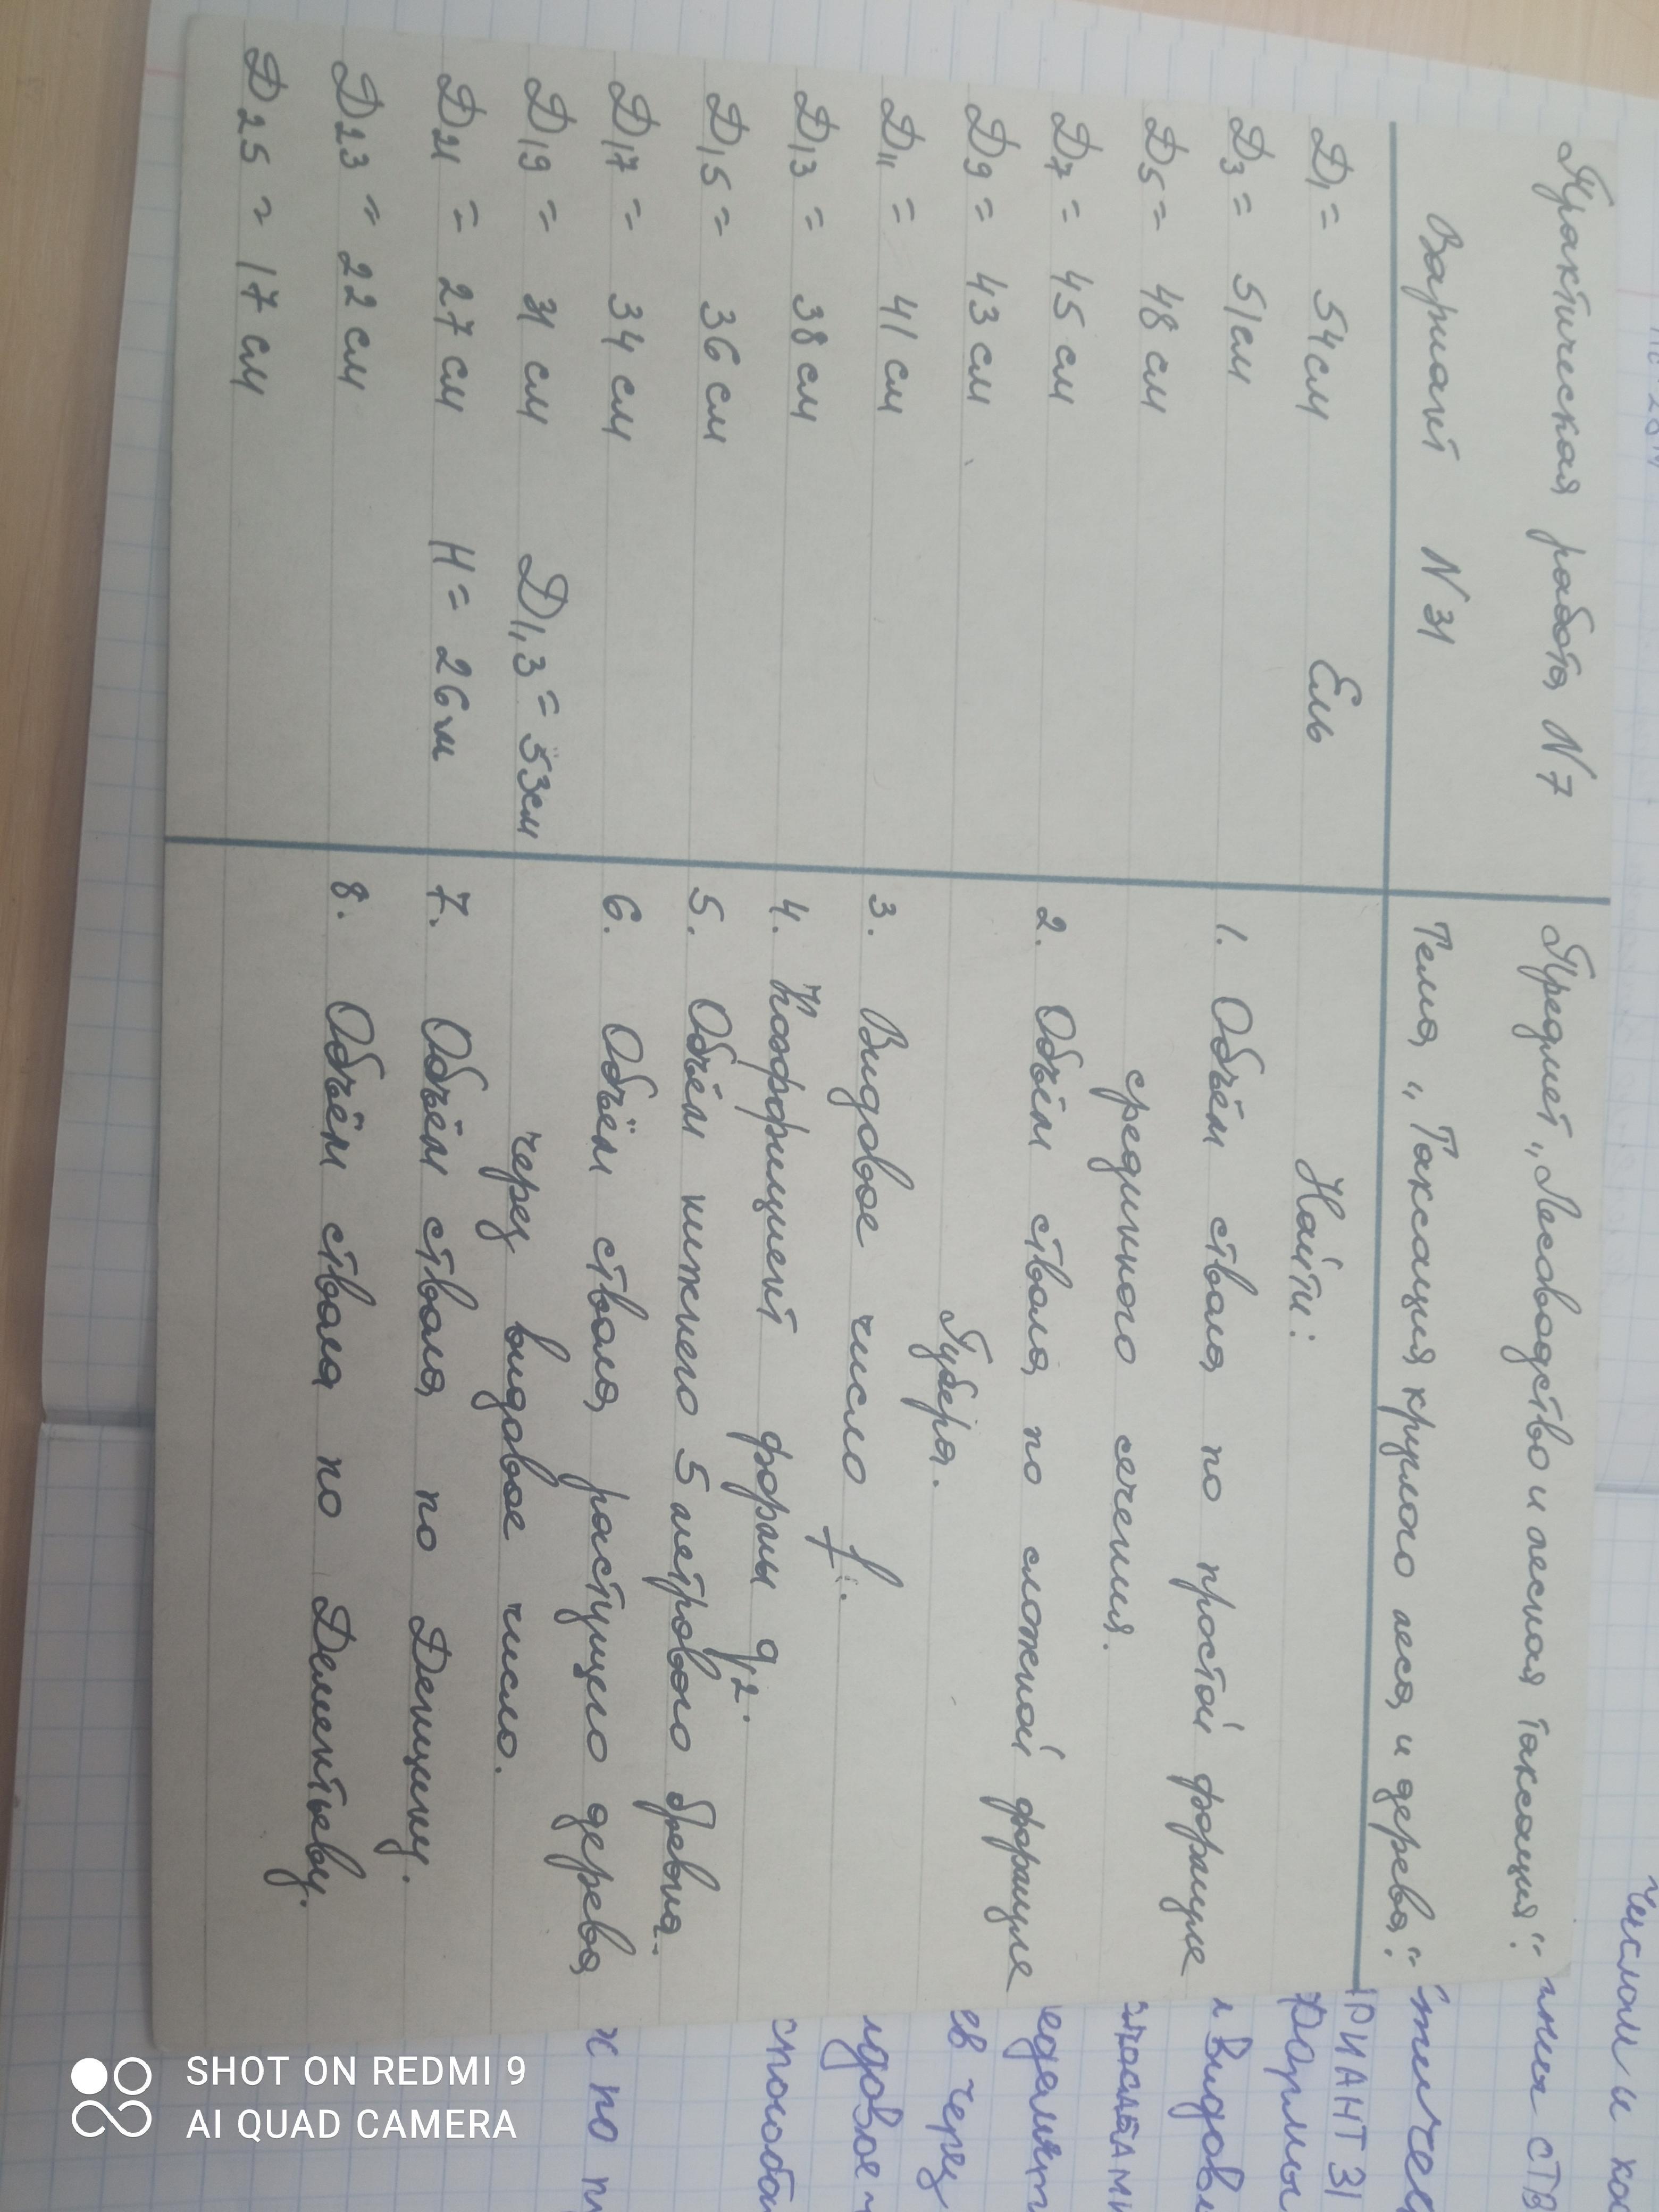 Практическая работа N7
Вариант N 31
Ель
Д1 = 54 см
Д3 = 51 см
Д5 = 48 см
Д7 = 45 см
Д9 = 43 см
Д11 = 41 см
Д13 = 38 см
Д15 = 36 см
Д17 = 34 см
Д19 = 31 см Д1,3 = 53 см
Д21 = 27 см H = 26 м
Д23 = 22 см
Д25 = 17 см
Предмет „Лесоводство и лесная таксация".
Тема „Таксация круглого леса и дерева".
Найти:
1. Объём ствола по простой формуле
срединного сечения.
2. Объём ствола по сложной формуле
Губера.
3. Видовое число f.
4. Коэффициент формы q2.
5. Объём нижнего 5 метрового бревна.
6. Объём ствола растущего дерева
через видовое число.
7. Объём ствола по Денцину.
8. Объём ствола по Дементьеву.
числом и ко
РИАНТ 31
формы
ев через
идовое
способа
SHOT ON REDMI 9
AI QUAD CAMERA